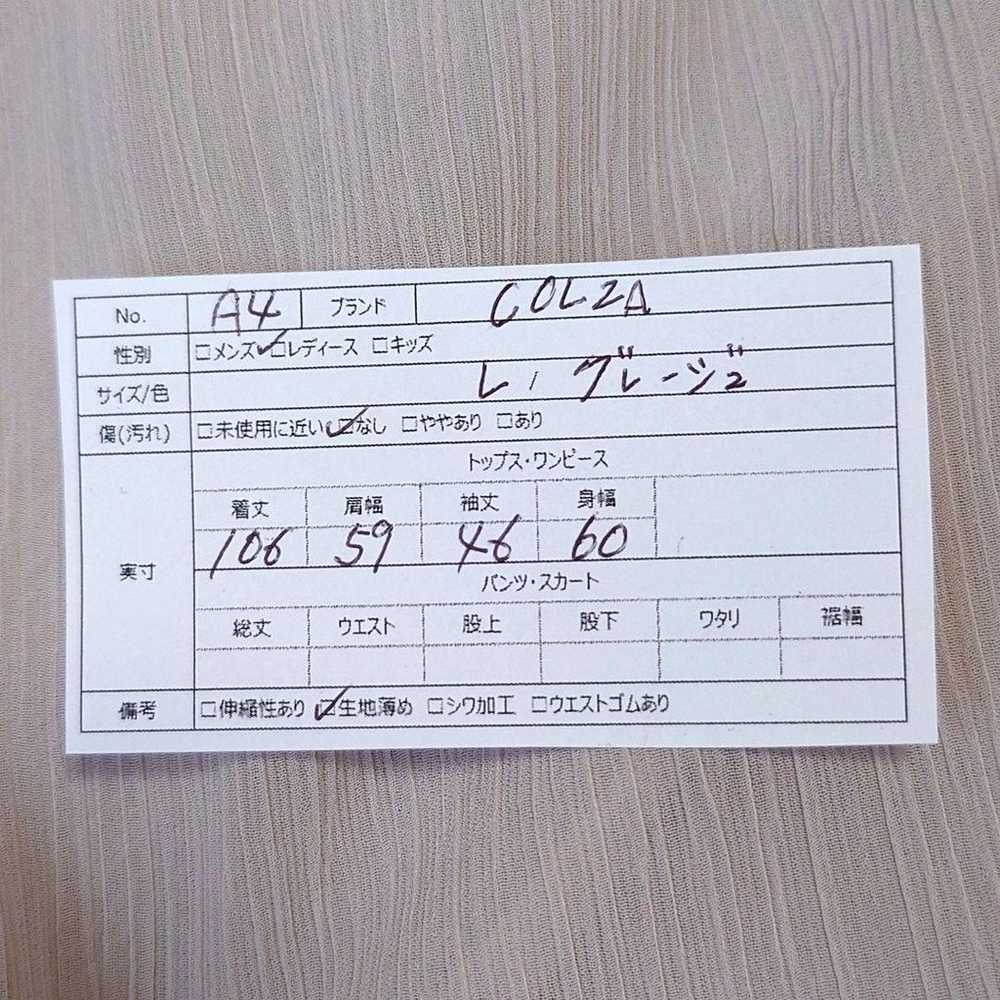 No. A4 ブランド COLZA
性別 □メンズ ☑レディース □キッズ
サイズ/色 L / グレージュ
傷(汚れ) □未使用に近い ☑なし □ややあり □あり
トップス・ワンピース
着丈 肩幅 袖丈 身幅
106 59 46 60
実寸
パンツ・スカート
総丈 ウエスト 股上 股下 ワタリ 裾幅
備考 □伸縮性あり ☑生地薄め □シワ加工 □ウエストゴムあり